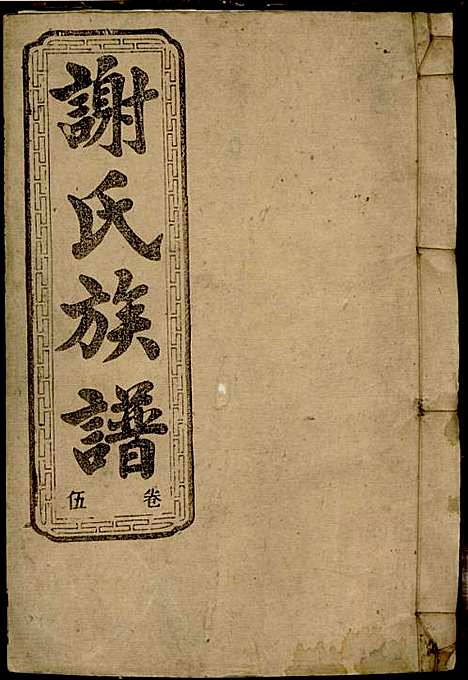 謝氏族譜
卷伍